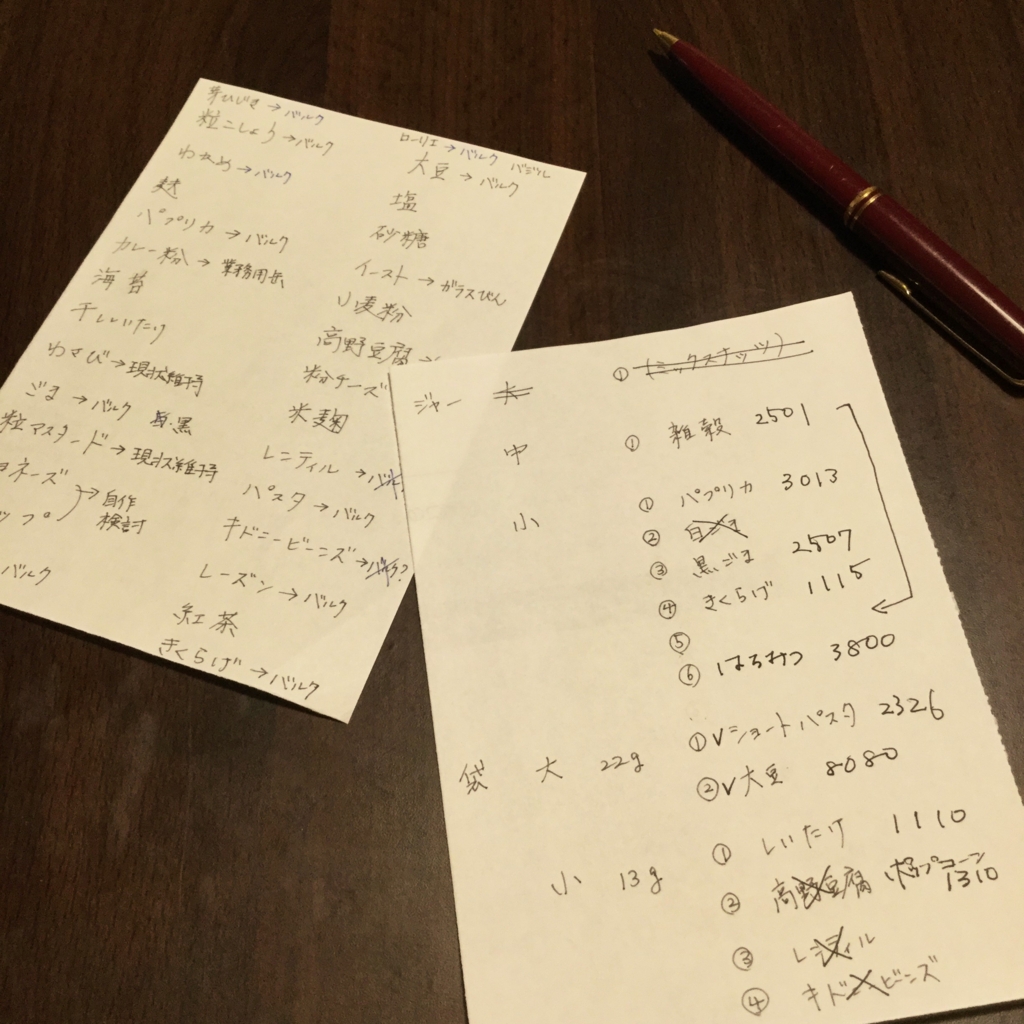 芽ひじき→バルク
粒こしょう→バルク
わかめ→バルク
麩
パプリカ→バルク
カレー粉→業務用缶
海苔
干しいたけ
わさび→現状維持
ごま→バルク 白・黒
粒マスタード→現状維持
ヨネーズ
ップ
→自作
検討
バルク
ローリエ→バルク バジル
大豆→バルク
塩
砂糖
イースト→ガラスびん
小麦粉
高野豆腐→
粉チーズ
米麹
レンティル→
パスタ→バルク
キドニービーンズ→バルク?
レーズン→バルク
紅茶
きくらげ→バルク
ジャー 大 ① (ミックスナッツ)
中 ① 雑穀 2501
小 ① パプリカ 3013
② 白ごま
③ 黒ごま 2507
④ きくらげ 1115
⑤
⑥ はちみつ 3800
袋 大 22g ①V ショートパスタ 2326
②V 大豆 8080
小 13g ① しいたけ 1110
② 高野豆腐 ポップコーン
1310
③ レンティル
④ キドニービーンズ